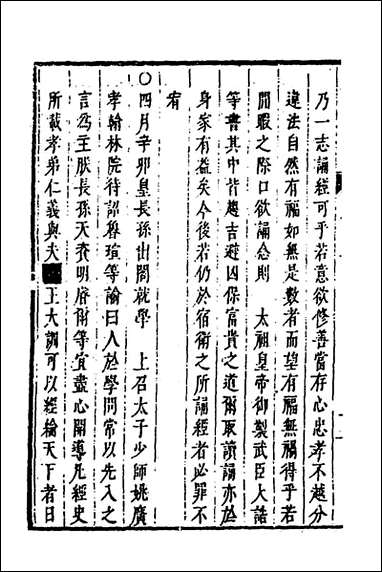 乃一志誦經可乎若意欲修善當存心忠孝不越分
違法自然有福如無是數者而望有福無福得乎若
閒暇之際口欲誦念則　太祖皇帝御製武臣大誥
等書其中皆趨吉避凶保富貴之道爾取讀誦亦於
身家有益矣今後若仍於宿衛之所誦經者必罪不
宥
○四月辛卯皇長孫出閣就學　上召太子少師姚廣
孝翰林院待詔魯瑄等諭曰人於學問常以先入之
言為主朕長孫天資明睿爾等宜盡心開導凡經史
所載孝弟仁義與夫王大訓可以經綸天下者日